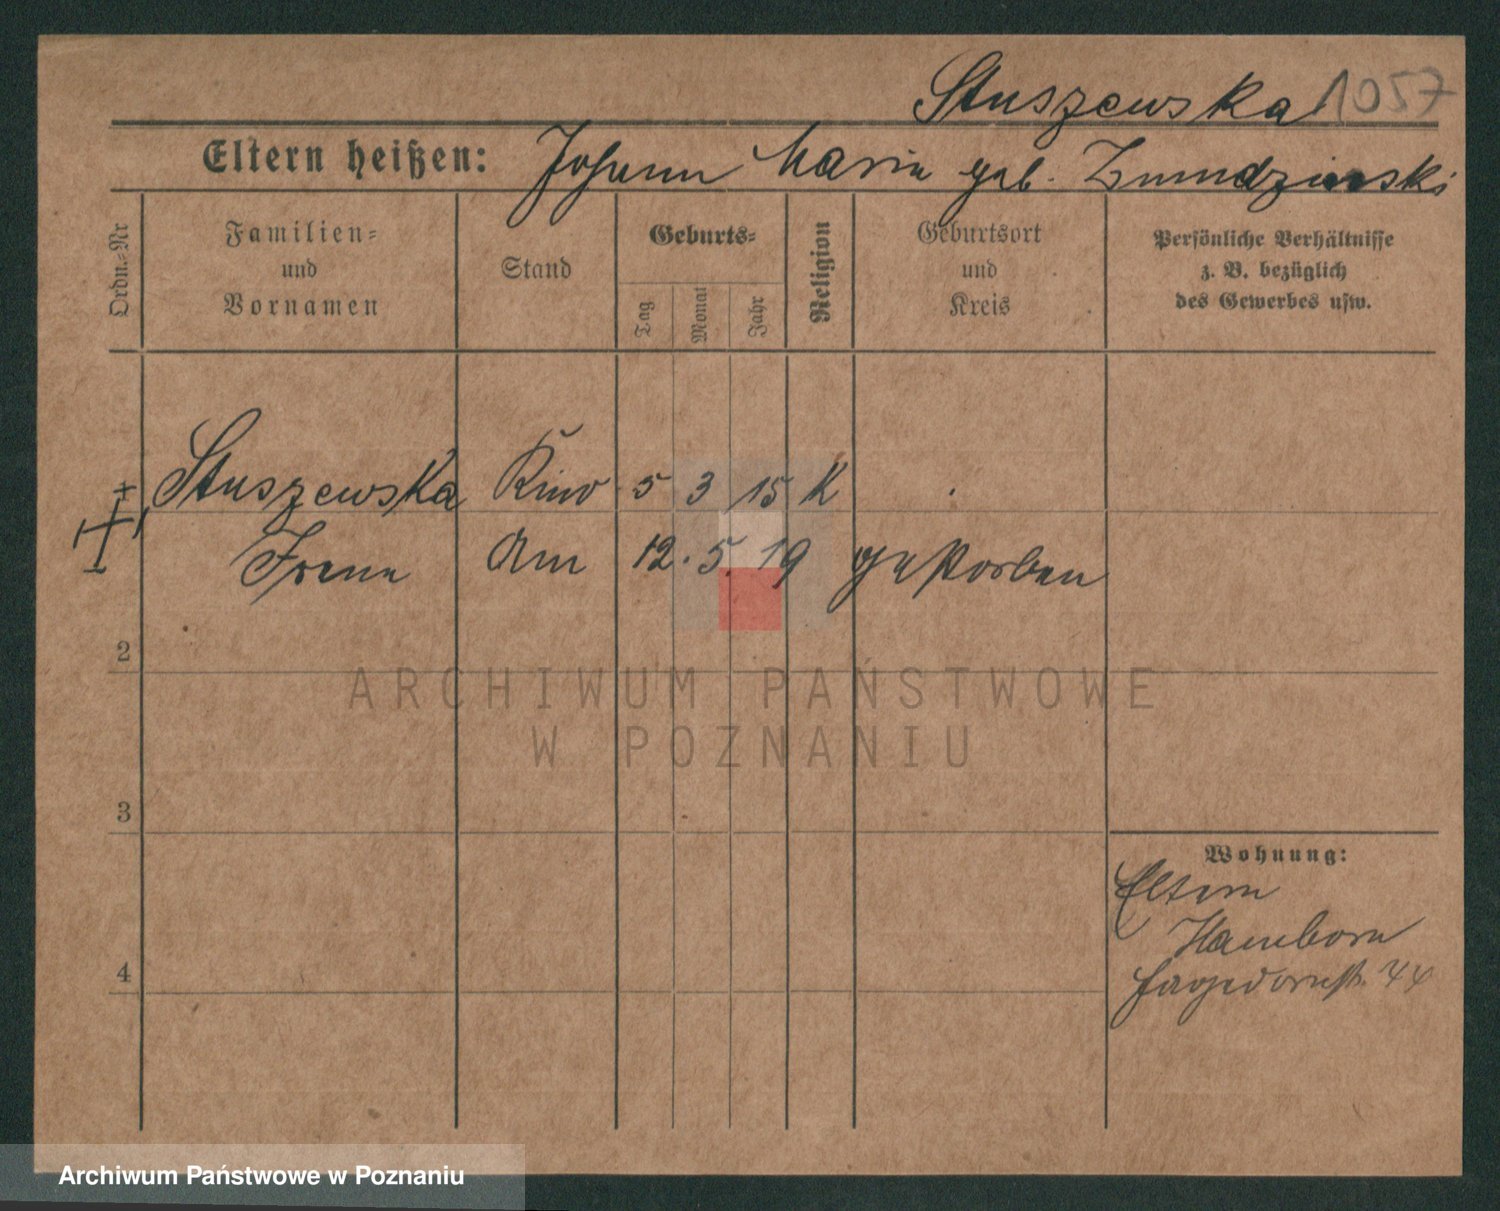 Stuszewska 1057
Eltern heißen: Johann Maria geb.
Ordn.-Nr
Familien-
und
Vornamen
Stand
Geburts-
Tag
Monat
Jahr
Religion
Geburtsort
und
Kreis
Persönliche Verhältnisse
z. B. bezüglich
des Gewerbes usw.
Stuszewska Kind 5 3 15 K
Irena Am 12. 5. 19 gestorben
2
ARCHIWUM PAŃSTWOWE
W POZNANIU
3
Wohnung:
Eltern
Hamborn
4
Archiwum Państwowe w Poznaniu